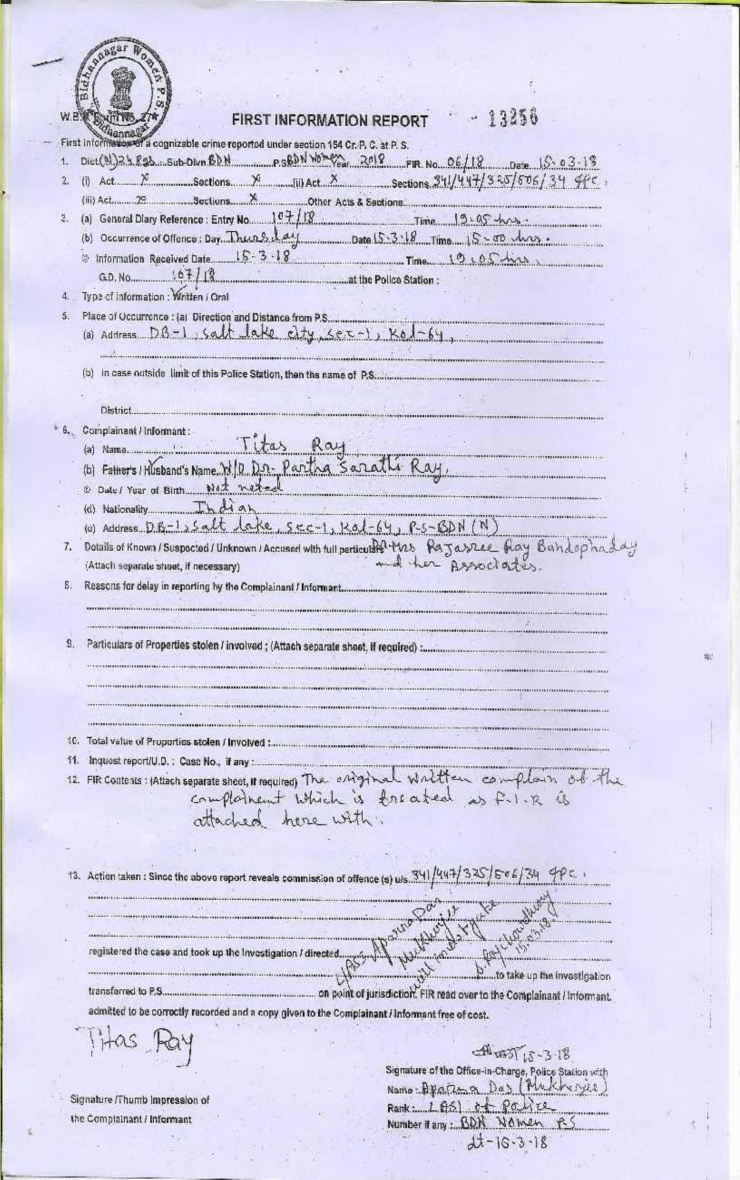 Bidhannagar Women P.S.
Bidhannagar
W.B. Form No. 27
FIRST INFORMATION REPORT
13256
First Information of a cognizable crime reported under section 154 Cr. P. C. at P. S.
1. Dist (N) 24 Pgs Sub-Divn BDN P.S BDN Women Year 2018 FIR. No. 06/18 Date 15-03-18
2. (i) Act X Sections X (ii) Act X Sections 341/447/325/506/34 IPC.
(iii) Act X Sections X Other Acts & Sections
3. (a) General Diary Reference : Entry No 107/18 Time 19.05 hrs.
(b) Occurrence of Offence ; Day Thursday Date 15-3-18 Time 15-00 hrs.
© Information Received Date 15-3-18 Time 19.05 hrs.
G.D. No. 107/18 at the Police Station :
4. Type of Information : Written / Oral
5. Place of Occurrence : (a) Direction and Distance from P.S.
(a) Address DB-1, Salt lake city, sec-1, Kol-64,
(b) In case outside limit of this Police Station, then the name of P.S.
District
6. Complainant / Informant :
(a) Name Titas Ray
(b) Father's / Husband's Name W/O Dr. Partha Sarathi Ray,
© Date / Year of Birth Not noted
(d) Nationality Indian
(e) Address DB-1, Salt lake, sec-1, Kol-64, P.S-BDN (N)
7. Details of Known / Suspected / Unknown / Accused with full particulars Mrs Rajasree Ray Bandophaday
(Attach separate sheet, if necessary) and her Associates.
8. Reasons for delay in reporting by the Complainant / Informant
9. Particulars of Properties stolen / involved ; (Attach separate sheet, if required) :
10. Total value of Properties stolen / Involved :
11. Inquest report/U.D. : Case No., if any :
12. FIR Contents : (Attach separate sheet, if required) The original written complain of the
complainent which is treated as F.I.R is
attached here with.
13. Action taken : Since the above report reveals commission of offence (s) u/s. 341/447/325/506/34 IPC.
LASI Aparna Das
Mukherjee
will investigate
S. Raychoudhury
15.03.18
registered the case and took up the Investigation / directed
to take up the investigation
transferred to P.S. on point of jurisdiction. FIR read over to the Complainant / Informant.
admitted to be correctly recorded and a copy given to the Complainant / Informant free of cost.
Titas Ray
15-3-18
Signature of the Office-in-Charge, Police Station with
Name : Aparna Das (Mukherjee)
Signature /Thumb Impression of
Rank : LASI of Police
the Complainant / Informant
Number if any : BDN Women P.S
dt-15-3-18